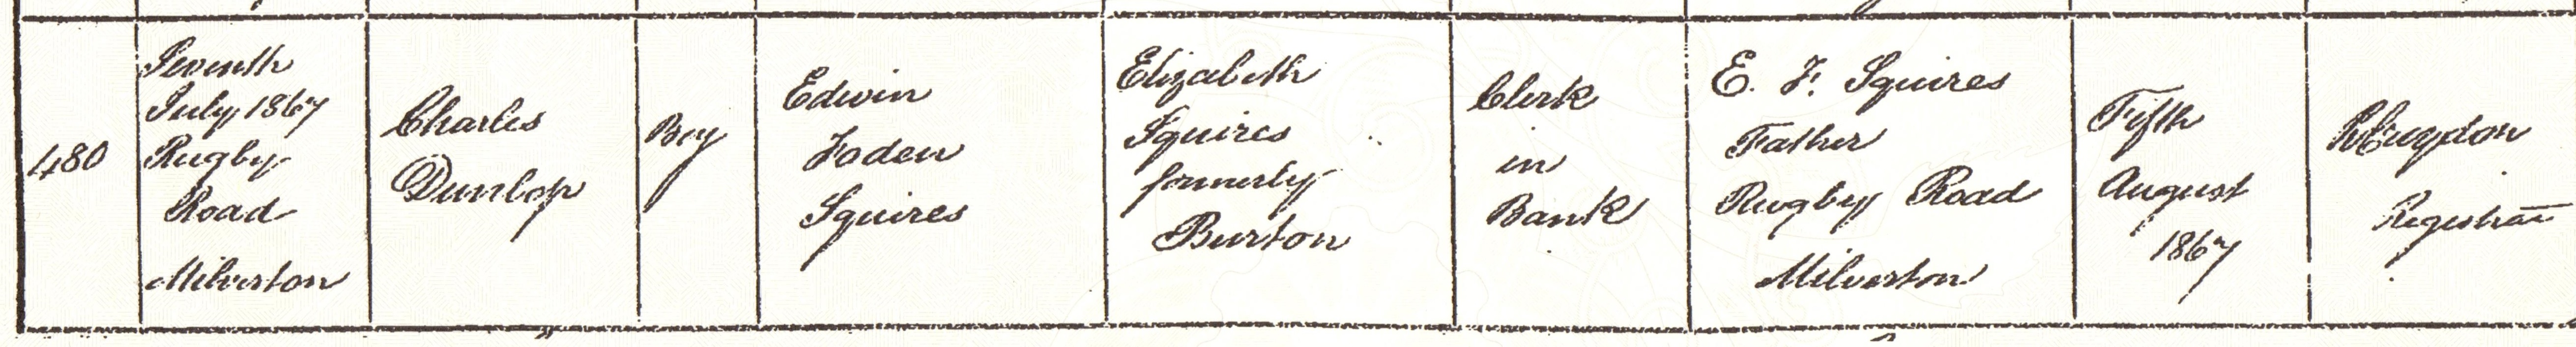 480
Seventh
July 1867
Rugby
Road
Milverton
Charles
Dunlop
Boy
Edwin
Foden
Squires
Elizabeth
Squires
formerly
Burton
Clerk
in
Bank
E. F. Squires
Father
Rugby Road
Milverton
Fifth
August
1867
Registrar